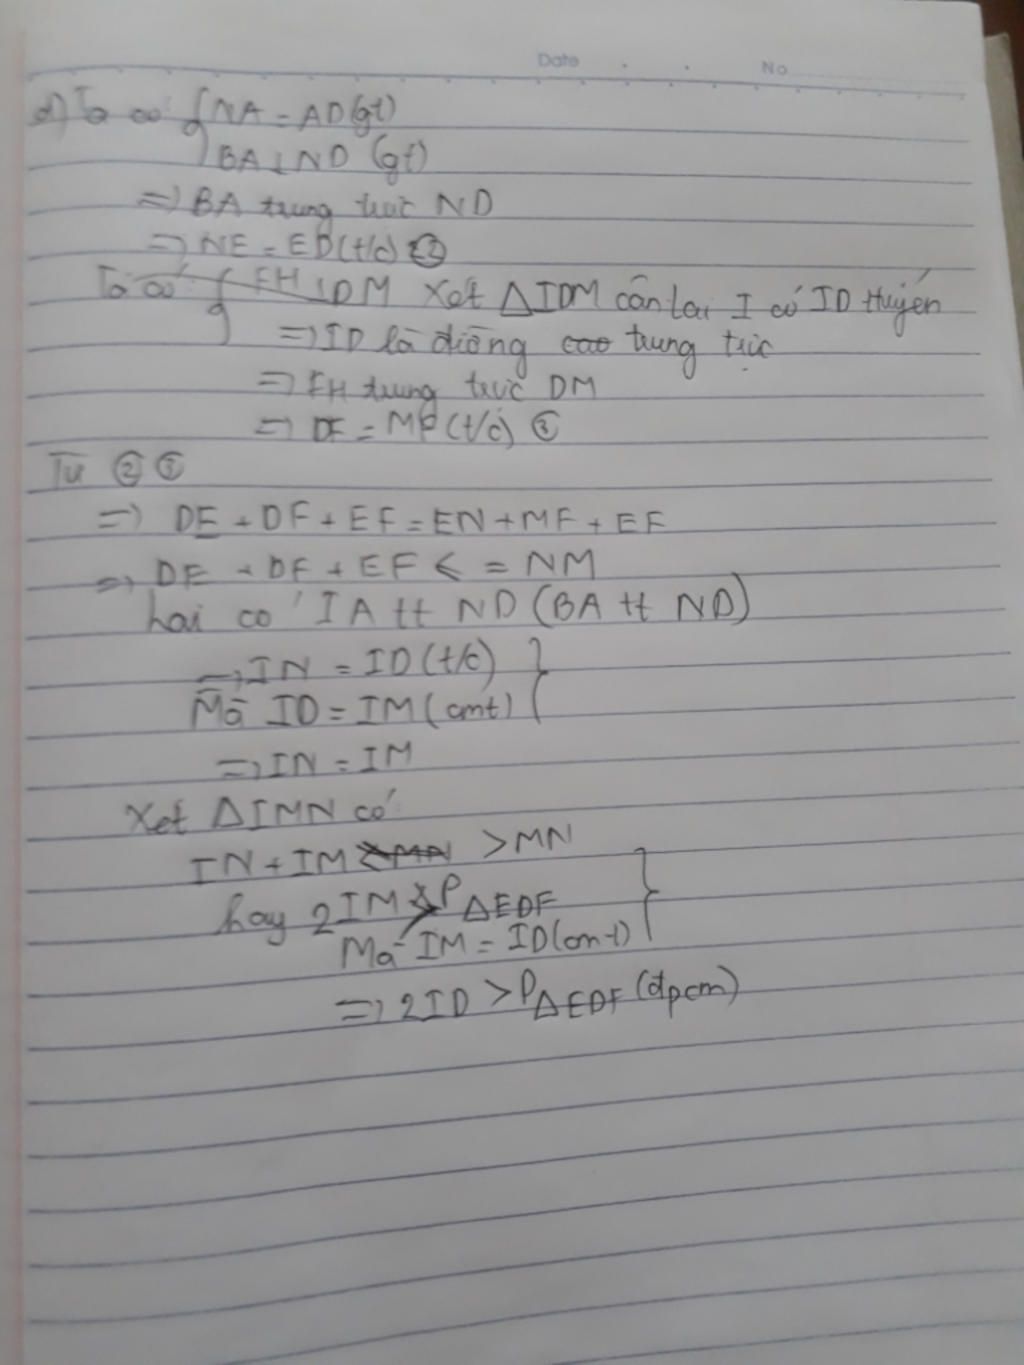 Date No
d) Ta có: { NA = AD (gt)
BA ⊥ ND (gt)
=> BA trung trực ND
=> NE = ED (t/c) ②
Ta có { FH ⊥ DM Xét ΔIDM cân tại I có ID
=> ID là đường cao trung trực
=> FH trung trực DM
=> DF = MF (t/c) ③
Từ ② ③
=> DE + DF + EF = EN + MF + EF
=> DE + DF + EF = NM
hại có IA tt ND (BA tt ND)
=> IN = ID (t/c) }
Mà ID = IM (cmt)
=> IN = IM
Xét ΔIMN có
IN + IM <MN > MN
hay 2IM > P ΔEDF }
Mà IM = ID (cmt)
=> 2ID > P ΔEDF (đpcm)